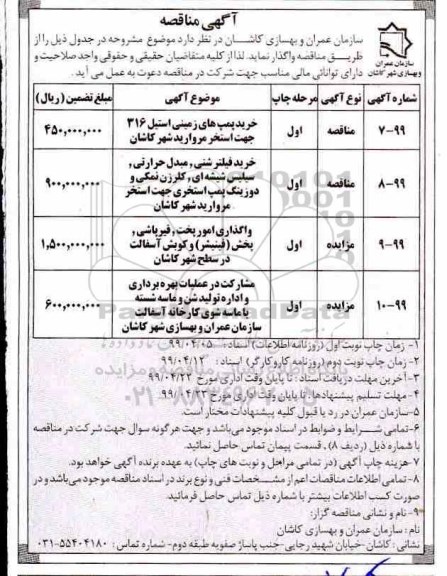 آگهی مناقصه
سازمان عمران و بهسازی کاشان در نظر دارد موضوع مشروحه در جدول ذیل را از
طریق مناقصه واگذار نماید. لذا از کلیه متقاضیان حقیقی و حقوقی واجد صلاحیت و
دارای توانائی مالی مناسب جهت شرکت در مناقصه دعوت به عمل می آید.
سازمان عمران
و بهسازی شهر کاشان
شماره آگهی نوع آگهی مرحله چاپ موضوع آگهی مبلغ تضمین (ریال)
۷-۹۹ مناقصه اول خرید پمپ های زمینی استیل ۳۱۶ ۴۵۰,۰۰۰,۰۰۰
جهت استخر مروارید شهر کاشان
خرید فیلتر شنی, مبدل حرارتی,
۸-۹۹ مناقصه اول سیلیس شیشه ای, کلرزن نمکی و ۹۰۰,۰۰۰,۰۰۰
دوزینگ پمپ استخری جهت استخر
مروارید شهر کاشان
واگذاری امور پخت, قیرپاشی,
۹-۹۹ مزایده اول پخش (فینیشر) و کوبش آسفالت ۱,۵۰۰,۰۰۰,۰۰۰
در سطح شهر کاشان
مشارکت در عملیات بهره برداری
۱۰-۹۹ مزایده اول و اداره تولید شن و ماسه شسته ۶۰۰,۰۰۰,۰۰۰
با ماسه شوی کارخانه آسفالت
سازمان عمران و بهسازی شهر کاشان
۱- زمان چاپ نوبت اول (روزنامه اطلاعات) اسناد: ۹۹/۰۴/۰۵
۲- زمان چاپ نوبت دوم (روزنامه کار و کارگر) اسناد: ۹۹/۰۴/۱۲
۳- آخرین مهلت دریافت اسناد: تا پایان وقت اداری مورخ ۹۹/۰۴/۲۲
۴- مهلت تسلیم پیشنهادها: تا پایان وقت اداری مورخ ۹۹/۰۴/۲۳
۵- سازمان عمران در رد یا قبول کلیه پیشنهادات مختار است.
۶- تمامی شرایط و ضوابط در اسناد موجود می باشد و جهت هر گونه سوال جهت شرکت در مناقصه
با شماره ذیل (ردیف ۸), قسمت پیمان تماس حاصل نمائید.
۷- هزینه چاپ آگهی (در تمامی مراحل و نوبت های چاپ) به عهده برنده آگهی خواهد بود.
۸- تمامی اطلاعات مناقصات اعم از مشخصات فنی و نوع برند در اسناد مناقصه موجود می باشد و در
صورت کسب اطلاعات بیشتر با شماره ذیل تماس حاصل فرمائید.
۹- نام و نشانی مناقصه گزار:
نام: سازمان عمران و بهسازی کاشان
نشانی: کاشان-خیابان شهید رجایی-جنب پاساژ صفویه طبقه دوم- شماره تماس: ۵۵۴۰۴۱۸۰-۰۳۱